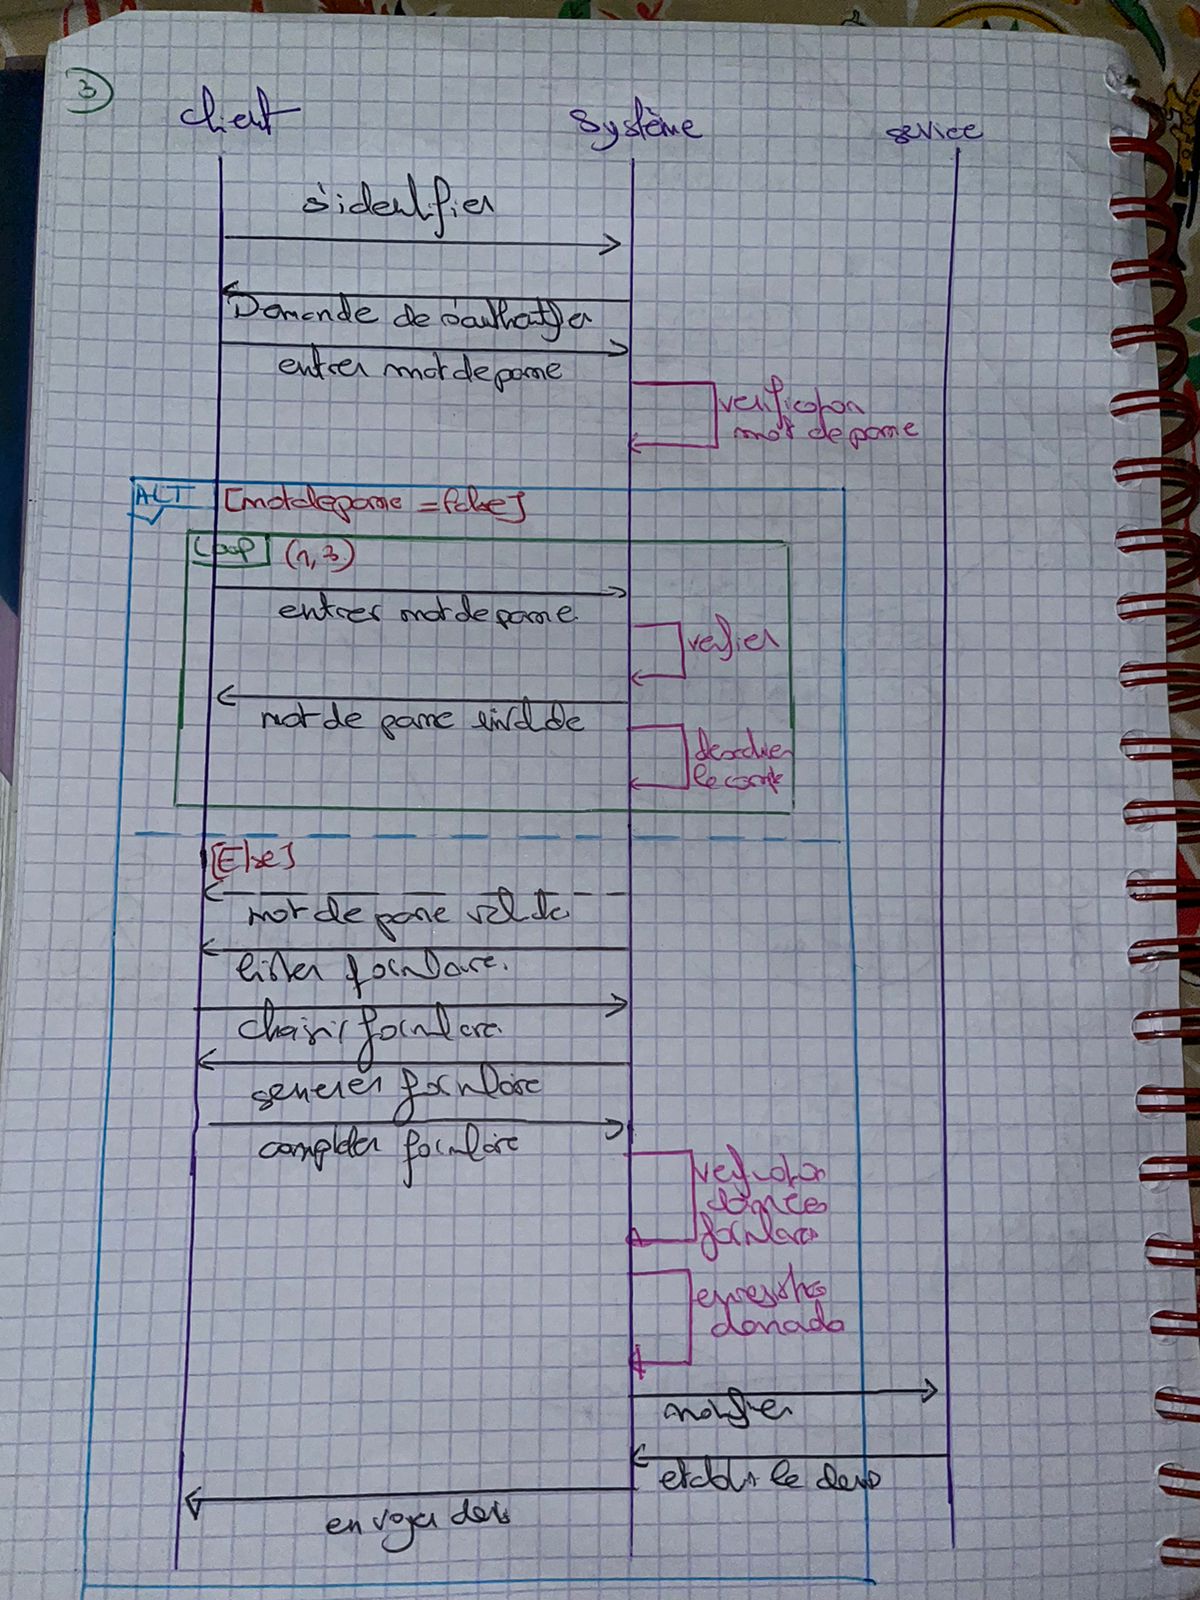 3
client
Système
service
s'identifier
Demande de s'authatifier
entrer mot de passe
verification
mot de passe
ALT [mot de passe = false]
Loop (1,3)
entrer mot de passe
verifier
mot de passe invalide
le compte
[Else]
mot de passe valide
lister formulaire.
choisir formulaire
generer formulaire
completer formulaire
verification
données
formulaire
notifier
etablir le devis
envoyer devis